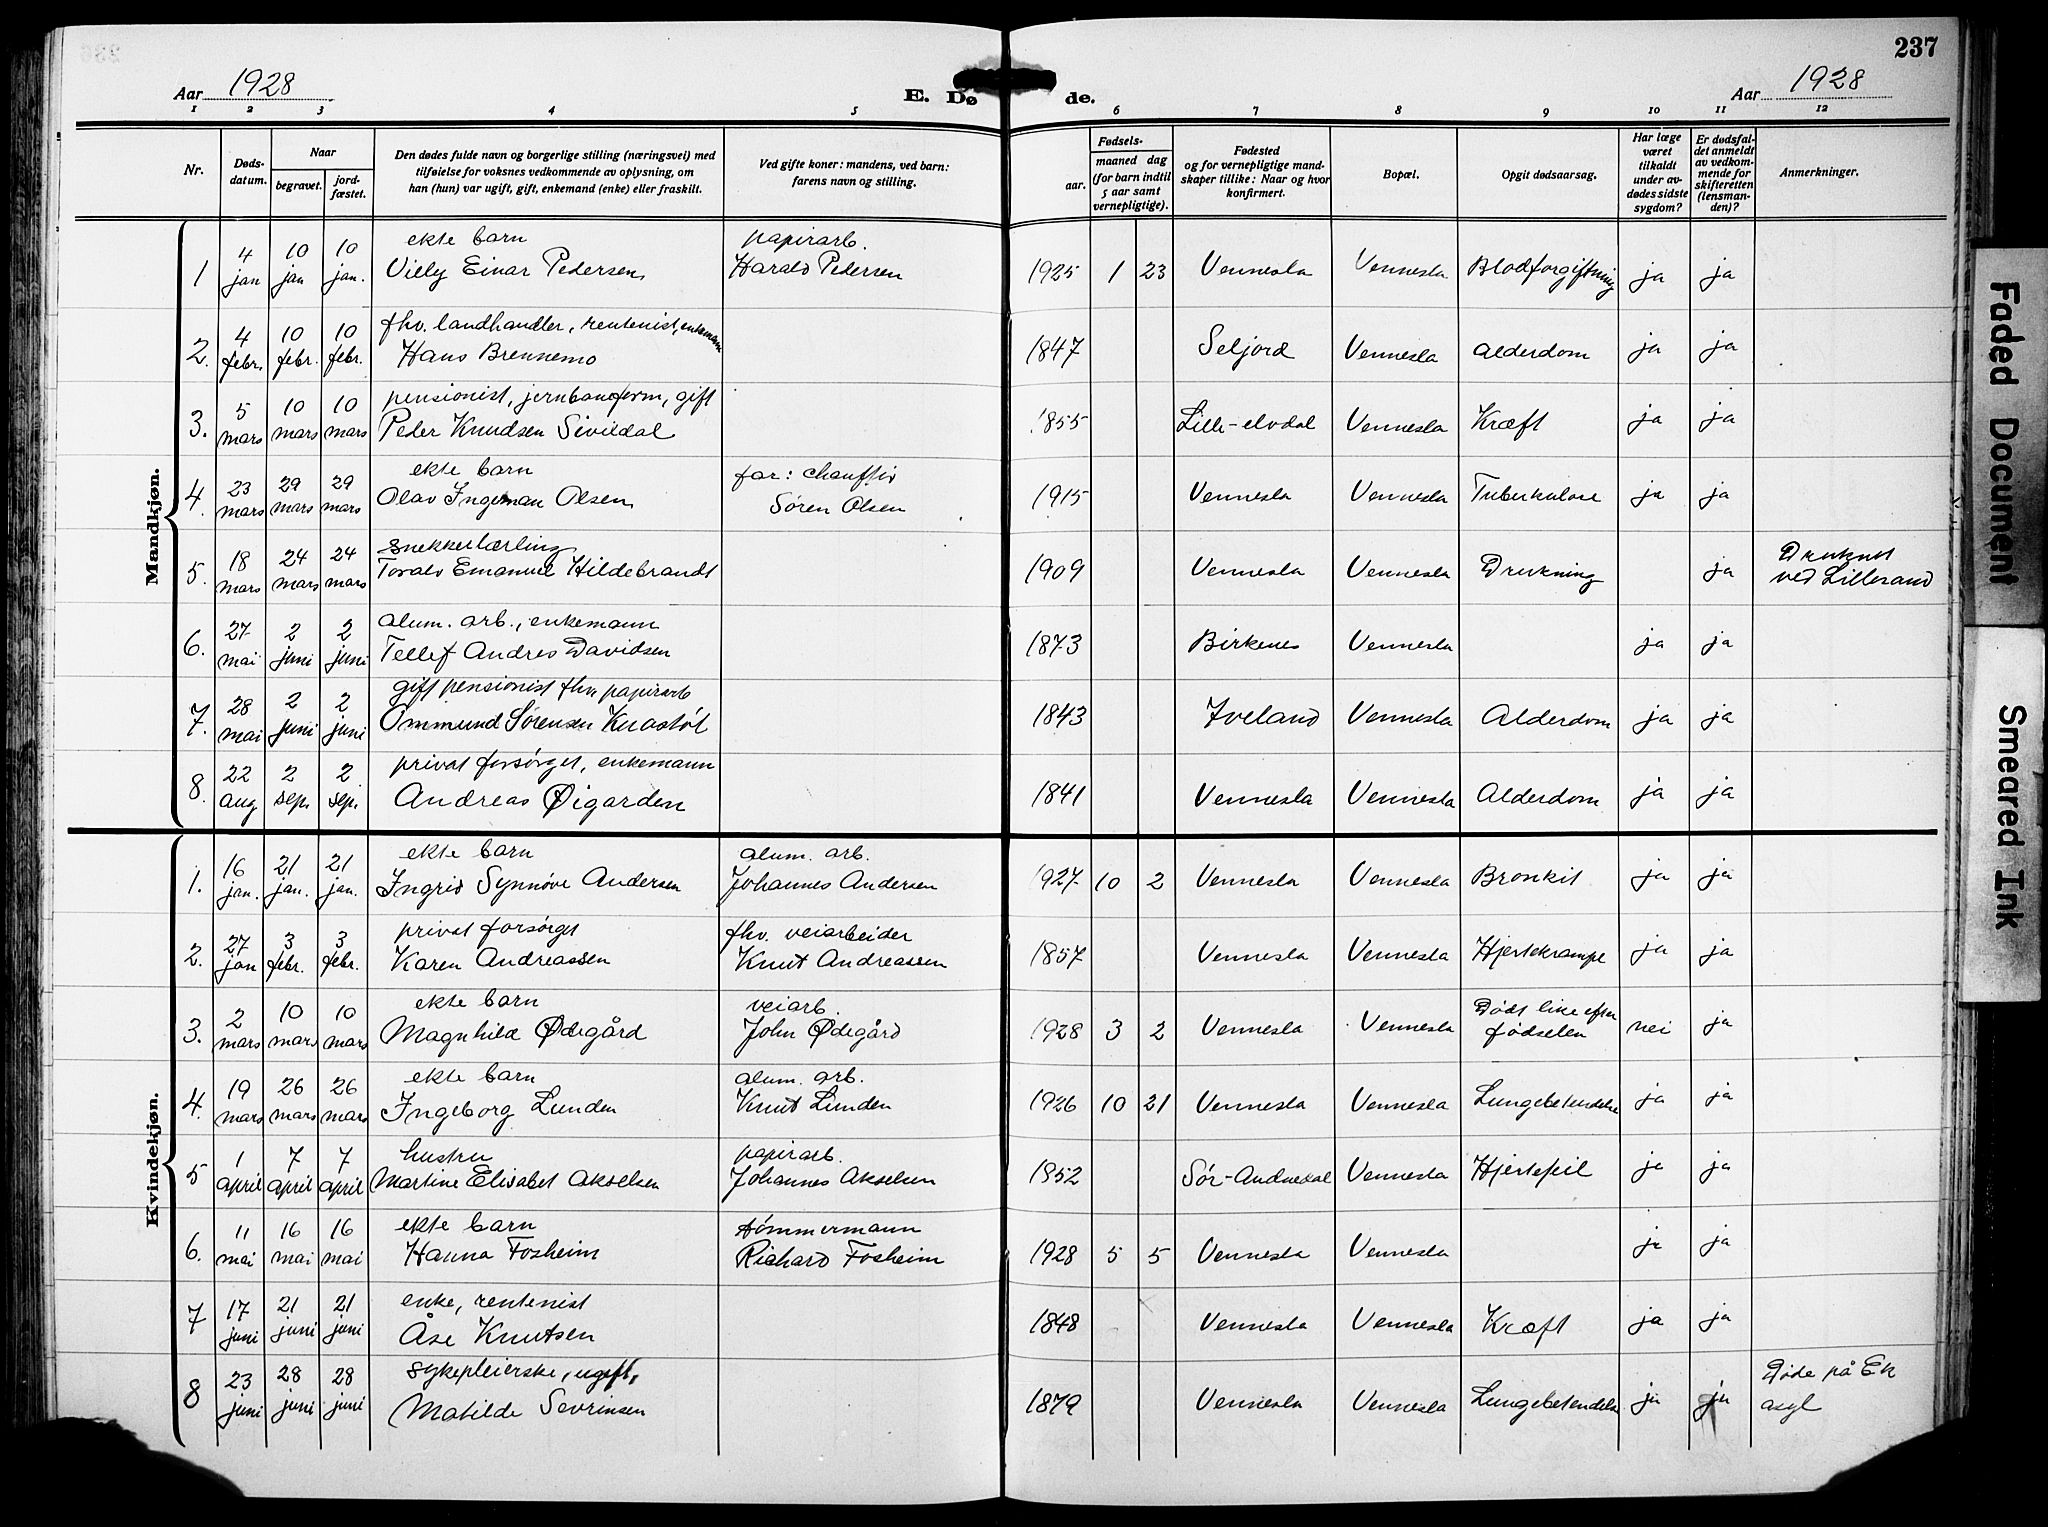 237
Aar 1928
E. Dø de.
Aar 1928
1 2 3 4 5 6 7 8 9 10 11 12
Nr.
Døds-
datum.
Naar
begravet.
jord-
fæstet.
Den dødes fulde navn og borgerlige stilling (næringsvei) med
tilføielse for voksnes vedkommende av oplysning, om
han (hun) var ugift, gift, enkemand (enke) eller fraskilt.
Ved gifte koner: mandens, ved barn:
farens navn og stilling.
Fødsels-
aar.
maaned dag
(for barn indtil
5 aar samt
vernepligtige).
Fødested
og for vernepligtige mand-
skaper tillike: Naar og hvor
konfirmert.
Bopæl.
Opgit dødsaarsag.
Har læge
været
tilkaldt
under av-
dødes sidste
sygdom?
Er dødsfal-
det anmeldt
av vedkom-
mende for
skifteretten
(lensman-
den)?
Anmerkninger.
Mandkjøn.
4 10 10 ekte barn papirarb.
1 jan jan jan. Villy Einar Pedersen, Harald Pedersen 1925 1 23 Vennesla Vennesla Blodforgiftning ja ja
4 10 10 fhv. landhandler, rentenist, enkemann
2. febr. febr. febr. Hans Brennemo 1847 Seljord Vennesla Alderdom ja ja
5 10 10 pensionist, jernbaneform, gift
3. mars mars mars Peder Knudsen Sivildal 1855 Lille-elvdal Vennesla Kræft ja ja
23 29 29 ekte barn far: chauffør
4. mars mars mars Olav Ingeman Olsen, Søren Olsen 1915 Vennesla Vennesla Tuberkulose ja ja
18 24 24 snekkerlærling Druknet
5. mars mars mars Toralv Emanuel Hildebrandt 1909 Vennesla Vennesla Drukning ja ved Lillesand
27 2 2 alum. arb., enkemann
6. mai juni juni Tellef Andres Davidsen 1873 Birkenes Vennesla ja ja
28 2 2 gift pensionist fhv papirarb
7. mai juni juni Ommund Sørensen Knastøl 1843 Iveland Vennesla Alderdom ja ja
22 2 2 privat forsørget, enkemann
8. aug sep. sep. Andreas Øigarden 1841 Vennesla Vennesla Alderdom ja ja
Kvindekjøn.
16 21 21 ekte barn alum. arb.
1. jan. jan. jan. Ingrid Synnøve Andersen Johannes Andersen 1927 10 2 Vennesla Vennesla Bronkit ja ja
27 3 3 privat forsørget fhv. veiarbeider
2. jan febr. febr. Karen Andreassen Knut Andreassen 1857 Vennesla Vennesla Hjertekrampe ja ja
2 10 10 ekte barn veiarb. Dødt like efter
3. mars mars mars Magnhild Ødegård John Ødegård 1928 3 2 Vennesla Vennesla fødselen nei ja
19 26 26 ekte barn alum. arb.
4. mars mars mars Ingeborg Lunden Knut Lunden 1926 10 21 Vennesla Vennesla Lungebetendelse ja ja
1 7 7 hustru papirarb.
5 april april april Martine Elisabet Akselsen Johannes Akselsen 1852 Sør-Audnedal Vennesla Hjertefeil ja ja
11 16 16 ekte barn tømmermann
6. mai mai mai Hanna Fosheim Richard Fosheim 1928 5 5 Vennesla Vennesla ja ja
17 21 21 enke, rentenist
7 juni juni juni Åse Knutsen 1848 Vennesla Vennesla Kræft ja ja
23 28 28 sykepleierske, ugift, Døde på Ek
8 juni juni juni Matilde Sevrinsen 1879 Vennesla Vennesla Lungebetendelse ja ja asyl
Faded Document
Smeared Ink